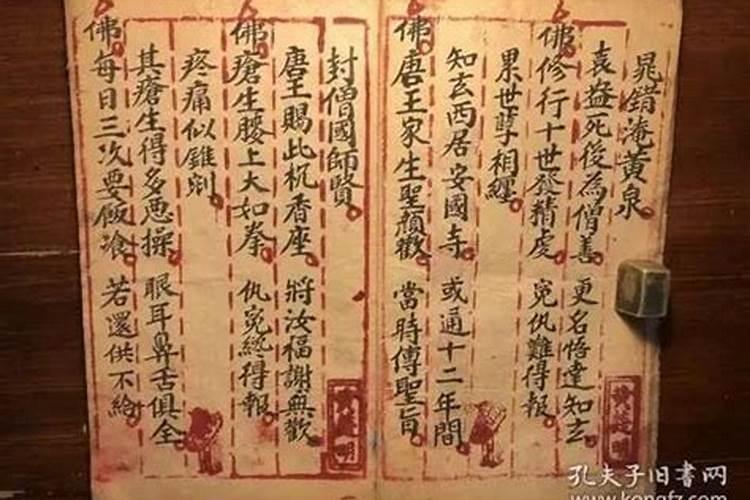 晁錯淹黃泉
袁盎死後為僧善 更名悟達知玄
佛修行十世發精虔 寃仇難得報
累世孽相纏
知玄西居安國寺 或通十二年間
佛唐王家生聖顏歡 當時傳聖旨
封僧國師賢
唐王賜此杌香座 將汝福謝無歡
佛瘡生腰上大如拳 仇寃終得報
疼痛似錐剜
其瘡生得多惡操 眼耳鼻舌俱全
佛每日三次要飯飡 若還供不給
孔夫子旧书网